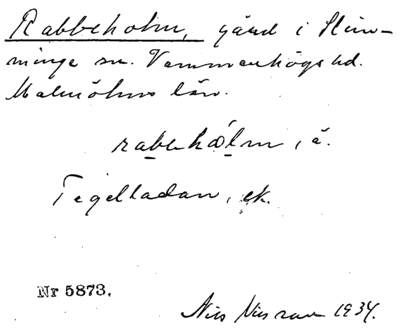 Rabbeholm, gård i Skur-
ninge sn. Vemmenhögs hd.
Malmöhus län.
rabehȧlm, ȧ.
Tegelladan, ek.
Nr 5873.
Nils Nilsson 1934.